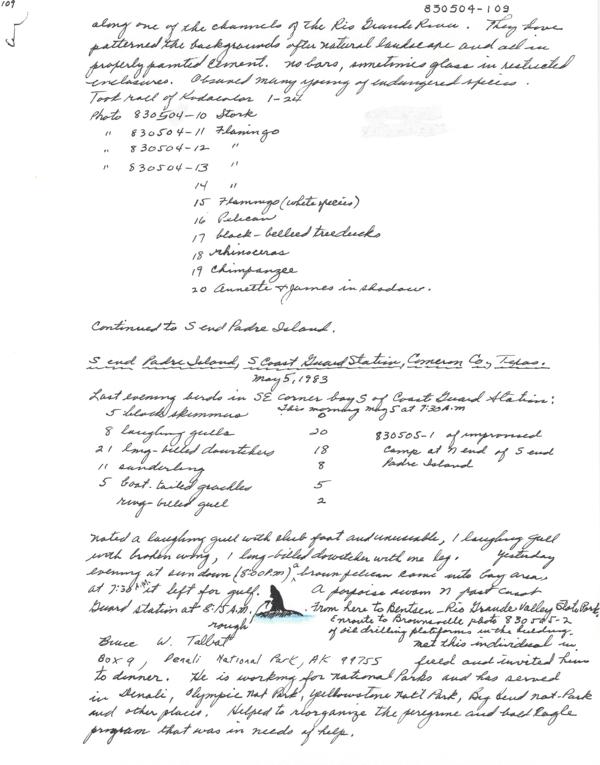 109
830504-109
along one of the channels of the Rio Grande River. They have
patterned the backgrounds after natural landscape and all in
properly painted cement. no bars, sometimes glass in restricted
enclosures. Observed many young of endangered species.
Took roll of Kodacolor 1-24
Photo 830504-10 Stork
" 830504-11 Flamingo
" 830504-12 "
" 830504-13 "
14 "
15 Flamingo (white species)
16 Pelican
17 black-bellied treeducks
18 rhinoceras
19 Chimpanzee
20 Annette & James in shadow.
Continued to S end Padre Island.
S end Padre Island, S Coast Guard Station, Cameron Co., Texas.
May 5, 1983
Last evening birds in SE corner bay S of Coast Guard Station:
This morning May 5 at 7:30 A.M
5 black skimmers 0
8 laughing gulls 20 830505-1 of improvised
21 long-billed dowitchers 18 camp at N end of S end
11 sanderling 8 Padre Island
5 boat-tailed grackles 5
ring-billed gull 2
Noted a laughing gull with club foot and unuseable, 1 laughing gull
with broken wing, 1 long-billed dowitcher with one leg. Yesterday
evening at sun down (8:00 P.M) a brown pelican came into bay area,
at 7:30 A.M. it left for gulf. A porpoise swam N past Coast
Guard station at 8:15 A.M. From here to Bentsen-Rio Grande Valley State Park.
Enroute to Brownsville photo 830505-2
rough of oil drilling platforms in the building.
Bruce W. Talbat met this individual in
Box 9, Denali National Park, AK 99755 field and invited him
to dinner. He is working for National Parks and has served
in Denali, Olympic Nat Park, Yellowstone Nat'l Park, Big Bend Nat-Park
and other places. Helped to reorganize the peregrine and bald Eagle
program that was in needs of help.